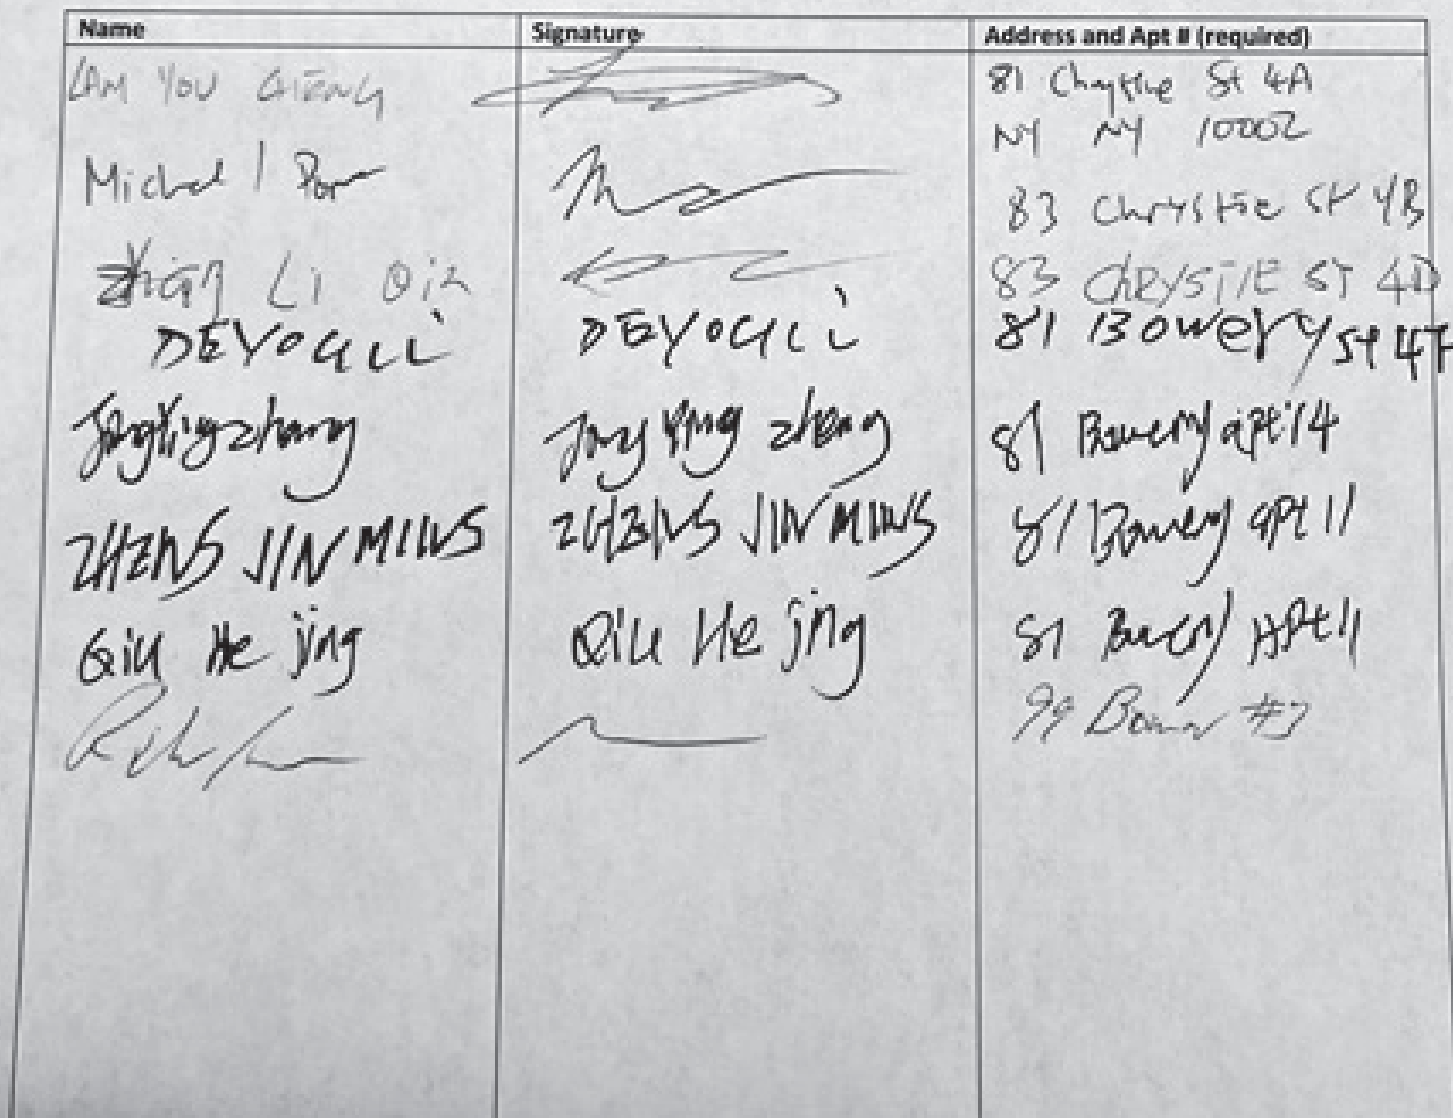 Name Signature Address and Apt # (required)
LAM YOU CHENG 81 Chrystie St 4A
NY NY 10002
Michael 83 Chrystie St 4B
Li 83 Chrystie ST 4D
DEYOU Li DEYOU Li 81 Bowery St 4F
zhang Jing Ying zheng 81 Bowery apt 14
ZHENG JIN MING ZHENG JIN MING 81 Bowery apt 11
Qiu He jing Qiu He jing 81 Bowery APt 11
99 Bowery